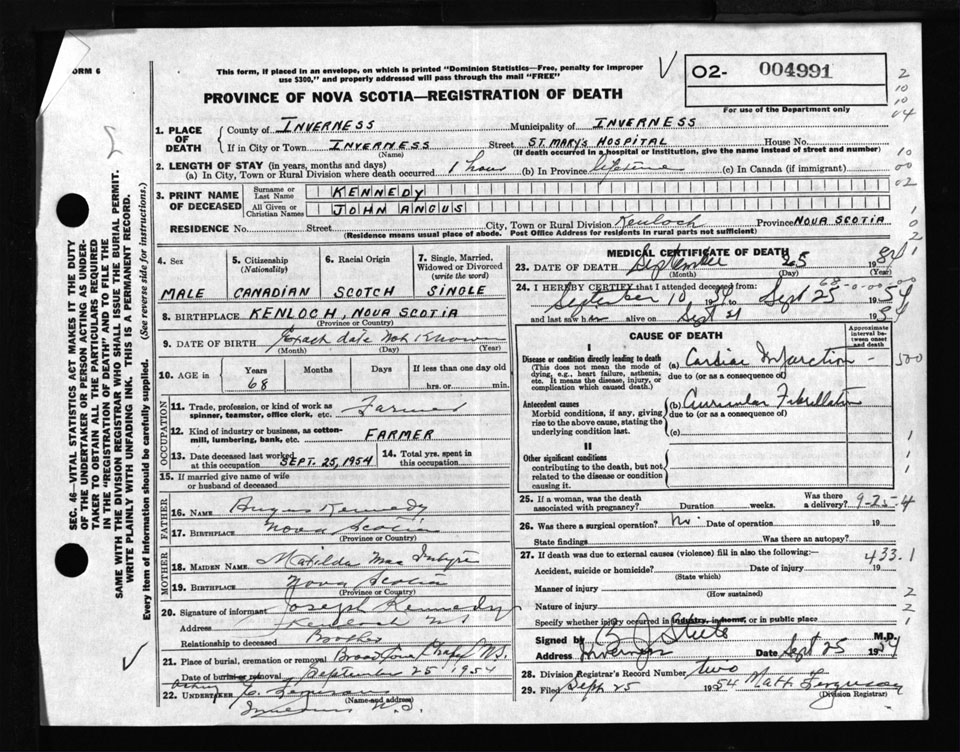 ORM 6
This form, if placed in an envelope, on which is printed "Dominion Statistics—Free, penalty for improper
use $300," and properly addressed will pass through the mail "FREE"
02- 004991
For use of the Department only
PROVINCE OF NOVA SCOTIA—REGISTRATION OF DEATH
1. PLACE OF DEATH
County of INVERNESS Municipality of INVERNESS
If in City or Town INVERNESS Street ST. MARY'S HOSPITAL House No.
(Name) (If death occurred in a hospital or institution, give the name instead of street and number)
2. LENGTH OF STAY (in years, months and days)
(a) In City, Town or Rural Division where death occurred 1 hour (b) In Province lifetime (c) In Canada (if immigrant)
3. PRINT NAME OF DECEASED
Surname or Last Name KENNEDY
All Given or Christian Names JOHN ANGUS
RESIDENCE No. Street City, Town or Rural Division Kenloch Province NOVA SCOTIA
(Residence means usual place of abode. Post Office Address for residents in rural parts not sufficient)
4. Sex MALE
5. Citizenship (Nationality) CANADIAN
6. Racial Origin SCOTCH
7. Single, Married, Widowed or Divorced (write the word) SINGLE
8. BIRTHPLACE KENLOCH, NOVA SCOTIA
(Province or Country)
9. DATE OF BIRTH Exact date not known
(Month) (Day) (Year)
10. AGE in Years 68 Months Days If less than one day old
hrs. or min.
OCCUPATION
11. Trade, profession, or kind of work as spinner, teamster, office clerk, etc. Farmer
12. Kind of industry or business, as cotton-mill, lumbering, bank, etc. FARMER
13. Date deceased last worked at this occupation SEPT. 25, 1954
14. Total yrs. spent in this occupation
15. If married give name of wife or husband of deceased
FATHER
16. Name Angus Kennedy
17. Birthplace Nova Scotia
(Province or Country)
MOTHER
18. MAIDEN NAME Matilda Mac Intyre
19. BIRTHPLACE Nova Scotia
(Province or Country)
20. Signature of informant Joseph Kennedy
Address Kenloch NS
Relationship to deceased Brother
21. Place of burial, cremation or removal Broad Cove Chapel N.S.
Date of burial or removal September 25 1954
22. UNDERTAKER
(Name and address)
Inverness N.S.
MEDICAL CERTIFICATE OF DEATH
23. DATE OF DEATH September 25 1954
(Month) (Day) (Year)
24. I HEREBY CERTIFY that I attended deceased from:
September 10 1954 to Sept 25 1954
and last saw h alive on Sept 21 1954
CAUSE OF DEATH
Approximate interval between onset and death
I
Disease or condition directly leading to death
(This does not mean the mode of dying, e.g., heart failure, asthenia, etc. It means the disease, injury, or complication which caused death.)
(a) Cardiac Infarction
due to (or as a consequence of)
Antecedent causes
Morbid conditions, if any, giving rise to the above cause, stating the underlying condition last.
(b) Auricular Fibrillation
due to (or as a consequence of)
(c)
II
Other significant conditions
contributing to the death, but not related to the disease or condition causing it.
25. If a woman, was the death associated with pregnancy? Duration weeks. Was there a delivery?
9-25-4
26. Was there surgical operation? No. Date of operation 19
State findings Was there an autopsy?
27. If death was due to external causes (violence) fill in also the following:—
433.1
Accident, suicide or homicide? Date of injury 19
(State which)
Manner of injury
(How sustained)
Nature of injury
Specify whether injury occurred in industry, in home, or in public place
Signed by M.D.
Address Inverness Date Sept 25 1954
28. Division Registrar's Record Number two
29. Filed Sept 25 1954 Matt Ferguson
(Division Registrar)
SEC. 46—VITAL STATISTICS ACT MAKES IT THE DUTY
OF THE UNDERTAKER OR PERSON ACTING AS UNDER-
TAKER TO OBTAIN ALL THE PARTICULARS REQUIRED
IN THE "REGISTRATION OF DEATH" AND TO FILE THE
SAME WITH THE DIVISION REGISTRAR WHO SHALL ISSUE THE BURIAL PERMIT.
WRITE PLAINLY WITH UNFADING INK. THIS IS A PERMANENT RECORD.
Every item of information should be carefully supplied. (See reverse side for instructions.)